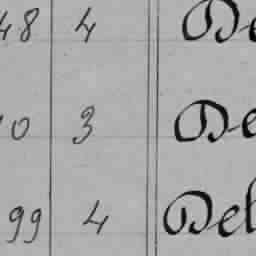 48 4 De
10 3 De
99 4 Del